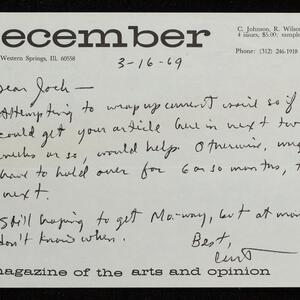 ecember
C. Johnson, R. Wilson
4 issues, $5.00; sample
Western Springs, Ill. 60558
Phone: (312) 246-1918
3-16-69
Dear Jock—
Attempting to wrap up current so if
could get your article here in next two
weeks or so, would help. Otherwise, mig
have to hold over for 6 or so months, t
next.
Still hoping to get but at mom
don't know when.
Best,
Curt
magazine of the arts and opinion